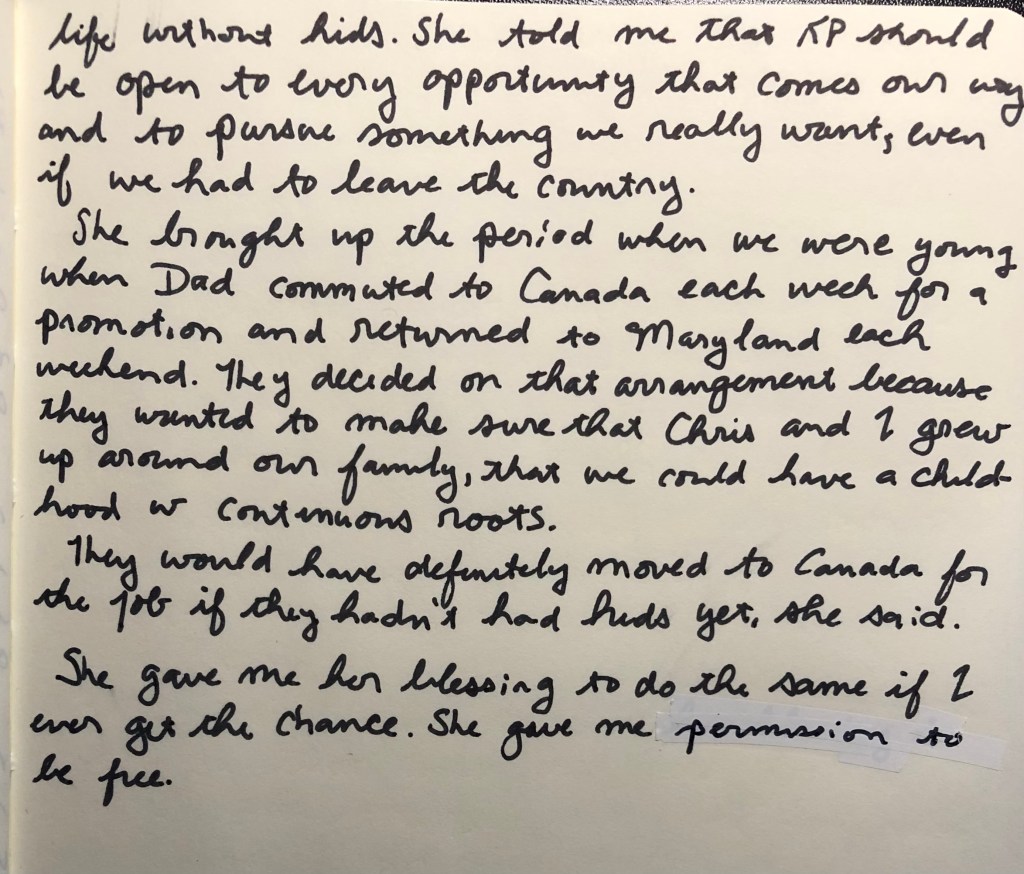 life without kids. She told me that KP should
be open to every opportunity that comes our way
and to pursue something we really want, even
if we had to leave the country.
She brought up the period when we were young
when Dad commuted to Canada each week for a
promotion and returned to Maryland each
weekend. They decided on that arrangement because
they wanted to make sure that Chris and I grew
up around our family, that we could have a child-
hood w continuous roots.
They would have definitely moved to Canada for
the job if they hadn't had kids yet, she said.
She gave me her blessing to do the same if I
ever get the chance. She gave me permission to
be free.